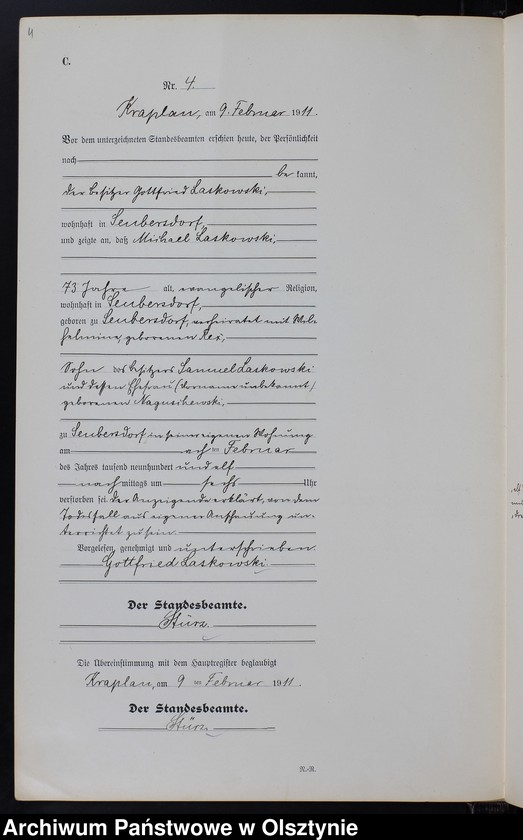 4
C.
Nr. 4.
Kraplau, am 9. Februar 1911.
Vor dem unterzeichneten Standesbeamten erschien heute, der Persönlichkeit
nach
bekannt,
der Besitzer Gottfried Laskowski,
wohnhaft in Seubersdorf,
und zeigte an, daß Michael Laskowski,
73 Jahre alt, evangelischer Religion,
wohnhaft in Seubersdorf,
geboren zu Seubersdorf, verheiratet mit Wil-
helmine, geborenen
Sohn des Besitzers Samuel Laskowski
und dessen Ehefrau (Vorname unbekannt)
geborenen
zu Seubersdorf in seiner eigenen Wohnung
am acht ten Februar
des Jahres tausend neunhundert und elf
nachmittags um sechs Uhr
verstorben sei. Der Anzeigende erklärt, von dem
Todesfall aus eigener Anschauung un-
terrichtet zu sein.
Vorgelesen, genehmigt und unterschrieben
Gottfried Laskowski.
Der Standesbeamte.
Stürz.
Die Übereinstimmung mit dem Hauptregister beglaubigt
Kraplau, am 9 ten Februar 1911.
Der Standesbeamte.
Stürz.
N.-R.
Archiwum Państwowe w Olsztynie